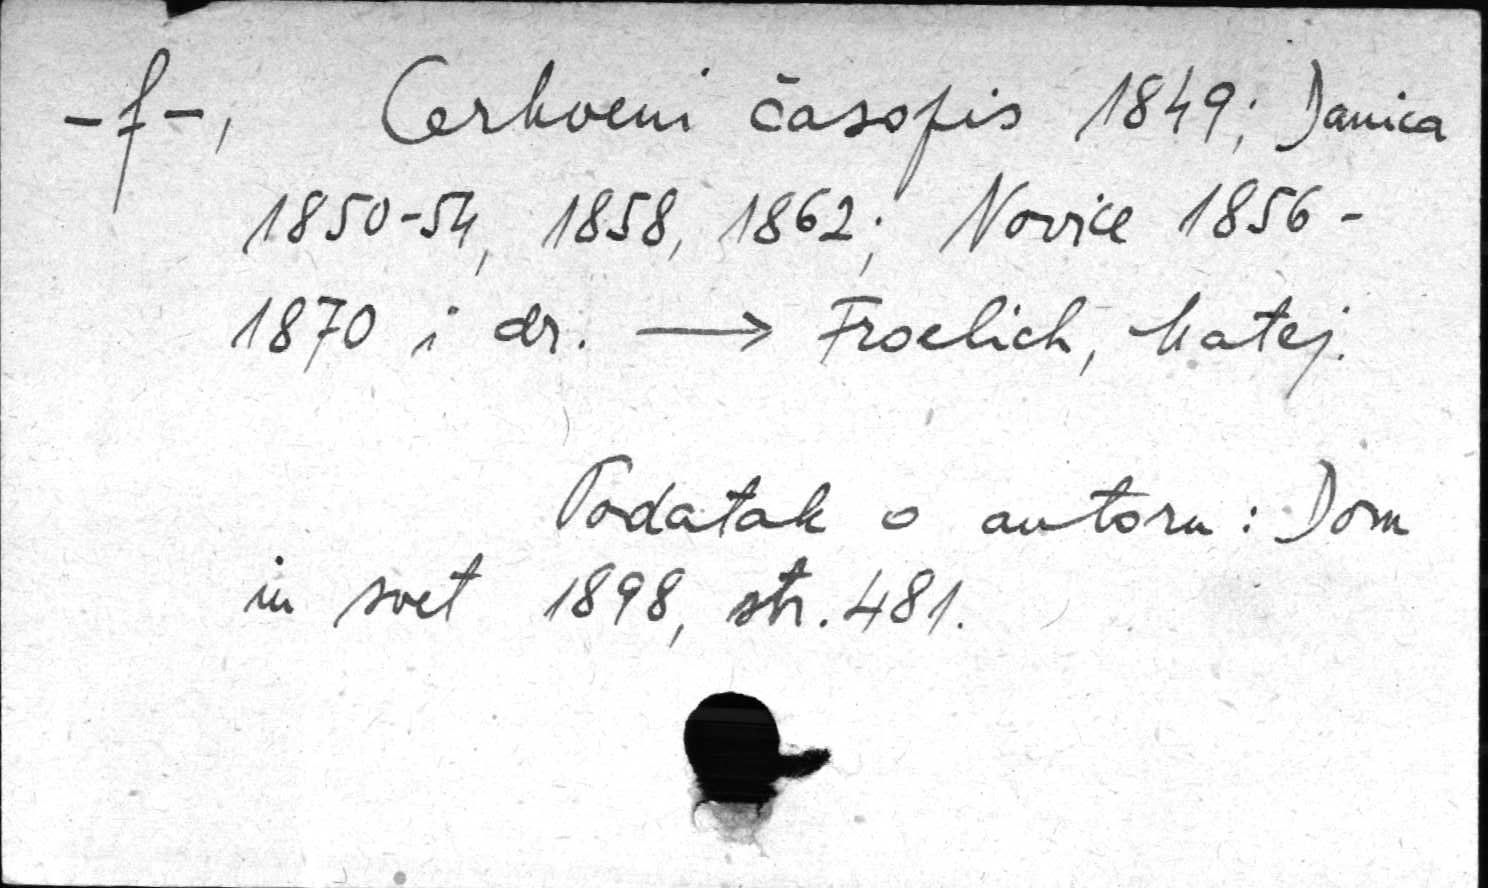 -f-, Cerkveni časopis 1849; Danica
1850-54, 1858, 1862; Novice 1856-
1870 i dr. → Froelich, Matej.
Podatak o autoru: Dom
in svet 1898, str. 481.